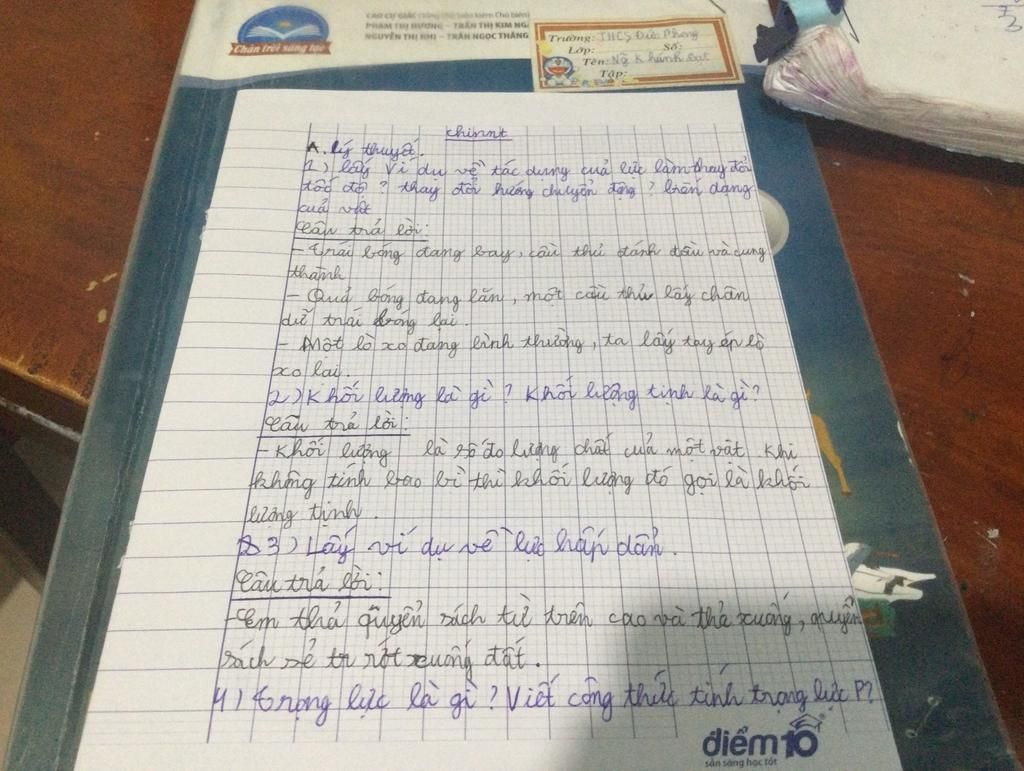 CAO CỰ GIÁC (Tổng Chủ biên kiêm Chủ biên)
PHẠM THỊ HƯƠNG – TRẦN THỊ KIM NGÂ
NGUYỄN THỊ NHI – TRẦN NGỌC THẮNG
Chân trời sáng tạo
Trường: THCS Đức Phong
Lớp: Số:
Tên: Ng Khánh Đạt
Tập:
A. lý thuyết.
1) lấy Ví dụ về tác dụng cuả lực làm thay đổi
tốc độ? thay đổi hướng chuyển động? biến dạng
cuả vật
Câu trả lời:
- Trái bóng đang bay, cầu thủ đánh đầu và cung
thành
- Quả bóng đang lăn, một cầu thủ lấy chân
dữ trái bóng lại.
- Một lò xo đang bình thường, ta lấy tay ép lò
xo lại.
2) Khối lượng là gì? Khối lượng tịnh là gì?
Câu trả lời:
- Khối lượng là số đo lượng chất của một vật. Khi
không tính bao bì thì khối lượng đó gọi là khối
lượng tịnh.
3) Lấy ví dụ về lực hấp dẫn.
Câu trả lời:
- Em thả quyển sách từ trên cao và thả xuống, quyển
sách sẻ rớt xuống đất.
4) Trọng lực là gì? Viết công thức tính trọng lực P?
điểm10
sẵn sàng học tốt